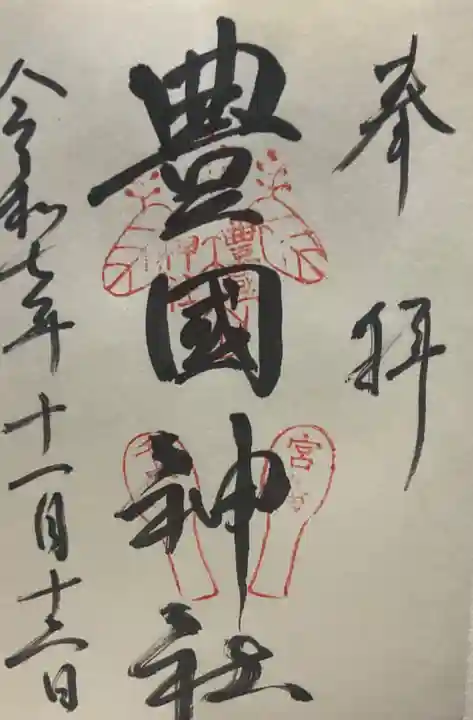 奉拝
豊國神社
令和七年十一月十六日
豊國
神社
宮